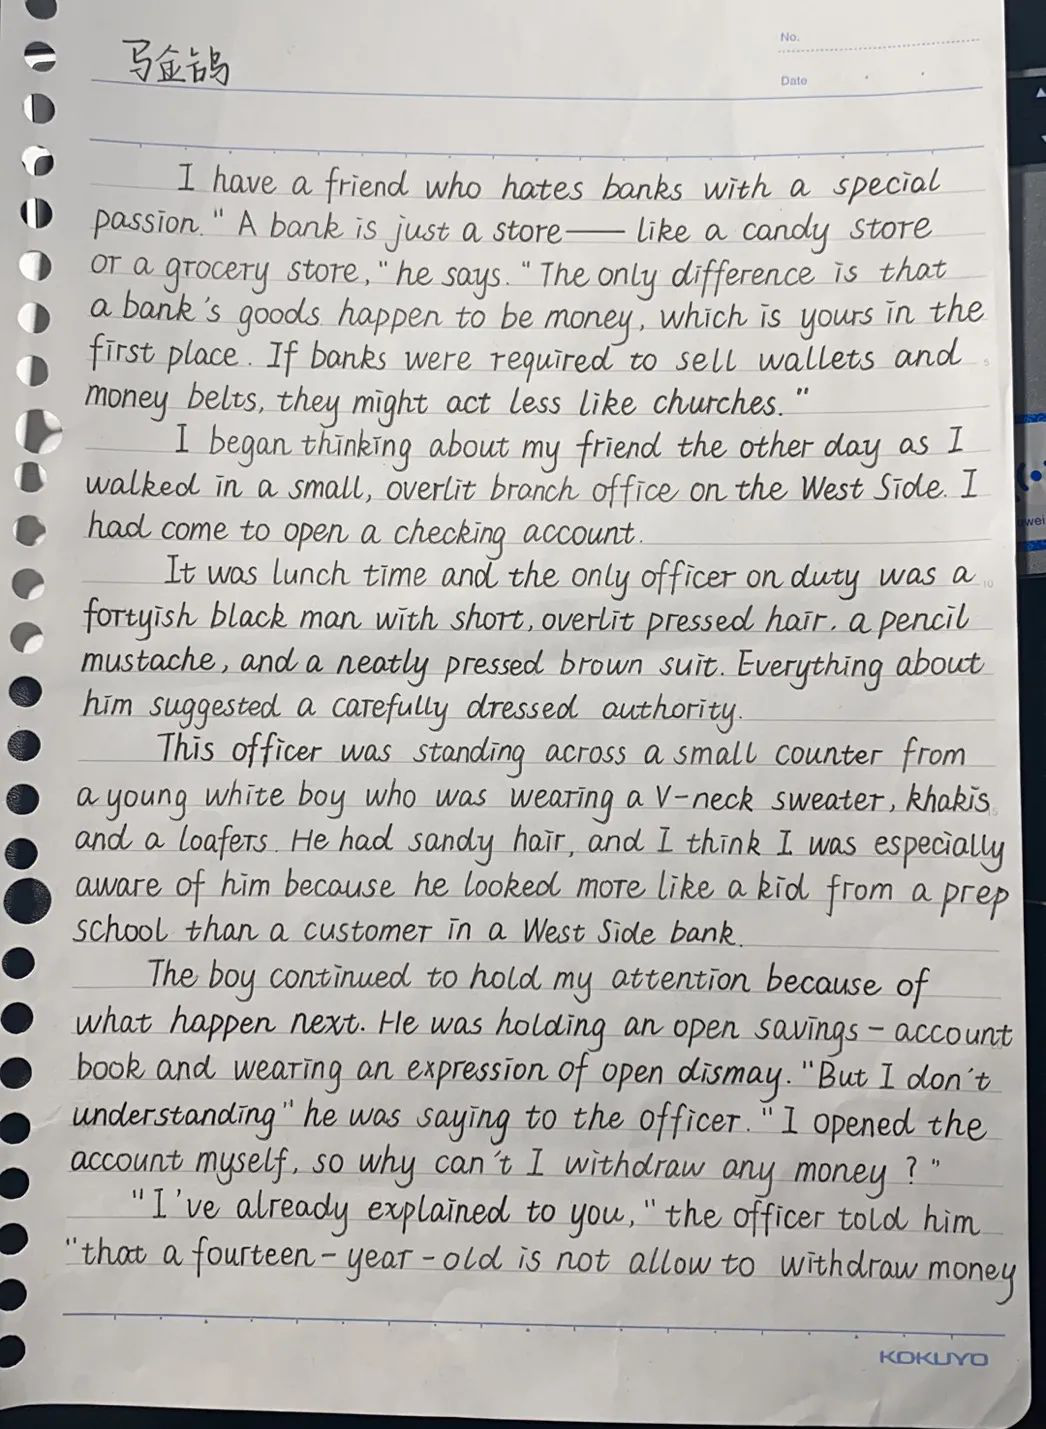 马金鸽
No.
Date
I have a friend who hates banks with a special
passion." A bank is just a store—— like a candy store
or a grocery store," he says. "The only difference is that
a bank's goods happen to be money, which is yours in the
first place. If banks were required to sell wallets and
money belts, they might act less like churches."
I began thinking about my friend the other day as I
walked in a small, overlit branch office on the West Side. I
had come to open a checking account.
It was lunch time and the only officer on duty was a
fortyish black man with short, overlit pressed hair. a pencil
mustache, and a neatly pressed brown suit. Everything about
him suggested a carefully dressed authority.
This officer was standing across a small counter from
a young white boy who was wearing a V-neck sweater, khakis
and a loafers. He had sandy hair, and I think I was especially
aware of him because he looked more like a kid from a prep
school than a customer in a West Side bank.
The boy continued to hold my attention because of
what happen next. He was holding an open savings-account
book and wearing an expression of open dismay. "But I don't
understanding" he was saying to the officer. "I opened the
account myself, so why can't I withdraw any money?"
"I've already explained to you," the officer told him
"that a fourteen-year-old is not allow to withdraw money
KOKUYO